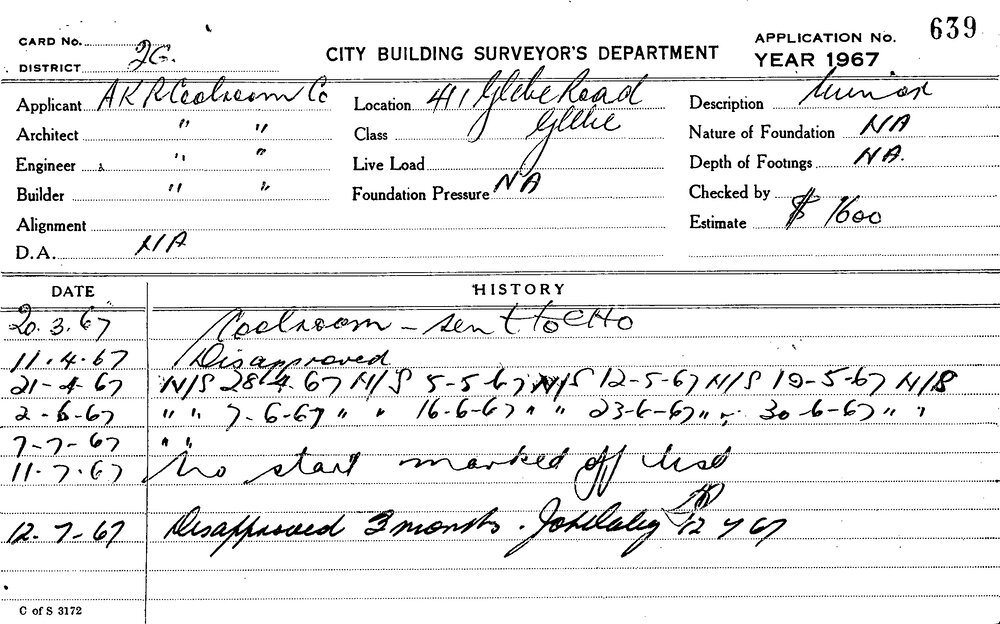 CARD No.
DISTRICT 2G.
CITY BUILDING SURVEYOR'S DEPARTMENT
APPLICATION No. 639
YEAR 1967
Applicant AKR Coolroom Co
Location 411 Glebe Road Glebe
Description Minor
Architect " "
Class
Nature of Foundation NA
Engineer " "
Live Load
Depth of Footings NA.
Builder " "
Foundation Pressure NA
Checked by
Alignment
Estimate $ 1600
D.A. NA
DATE HISTORY
20.3.67 Coolroom - sent to CHO
11.4.67 Disapproved
21-4-67 N/S 28.4.67 N/S 5-5-67 N/S 12-5-67 N/S 19-5-67 N/S
2-6-67 " " 7-6-67 " " 16-6-67 " " 23-6-67 " " 30-6-67 " "
7-7-67 " "
11.7.67 No start marked off
12.7.67 Disapproved 3 months. 12 7 67
C of S 3172